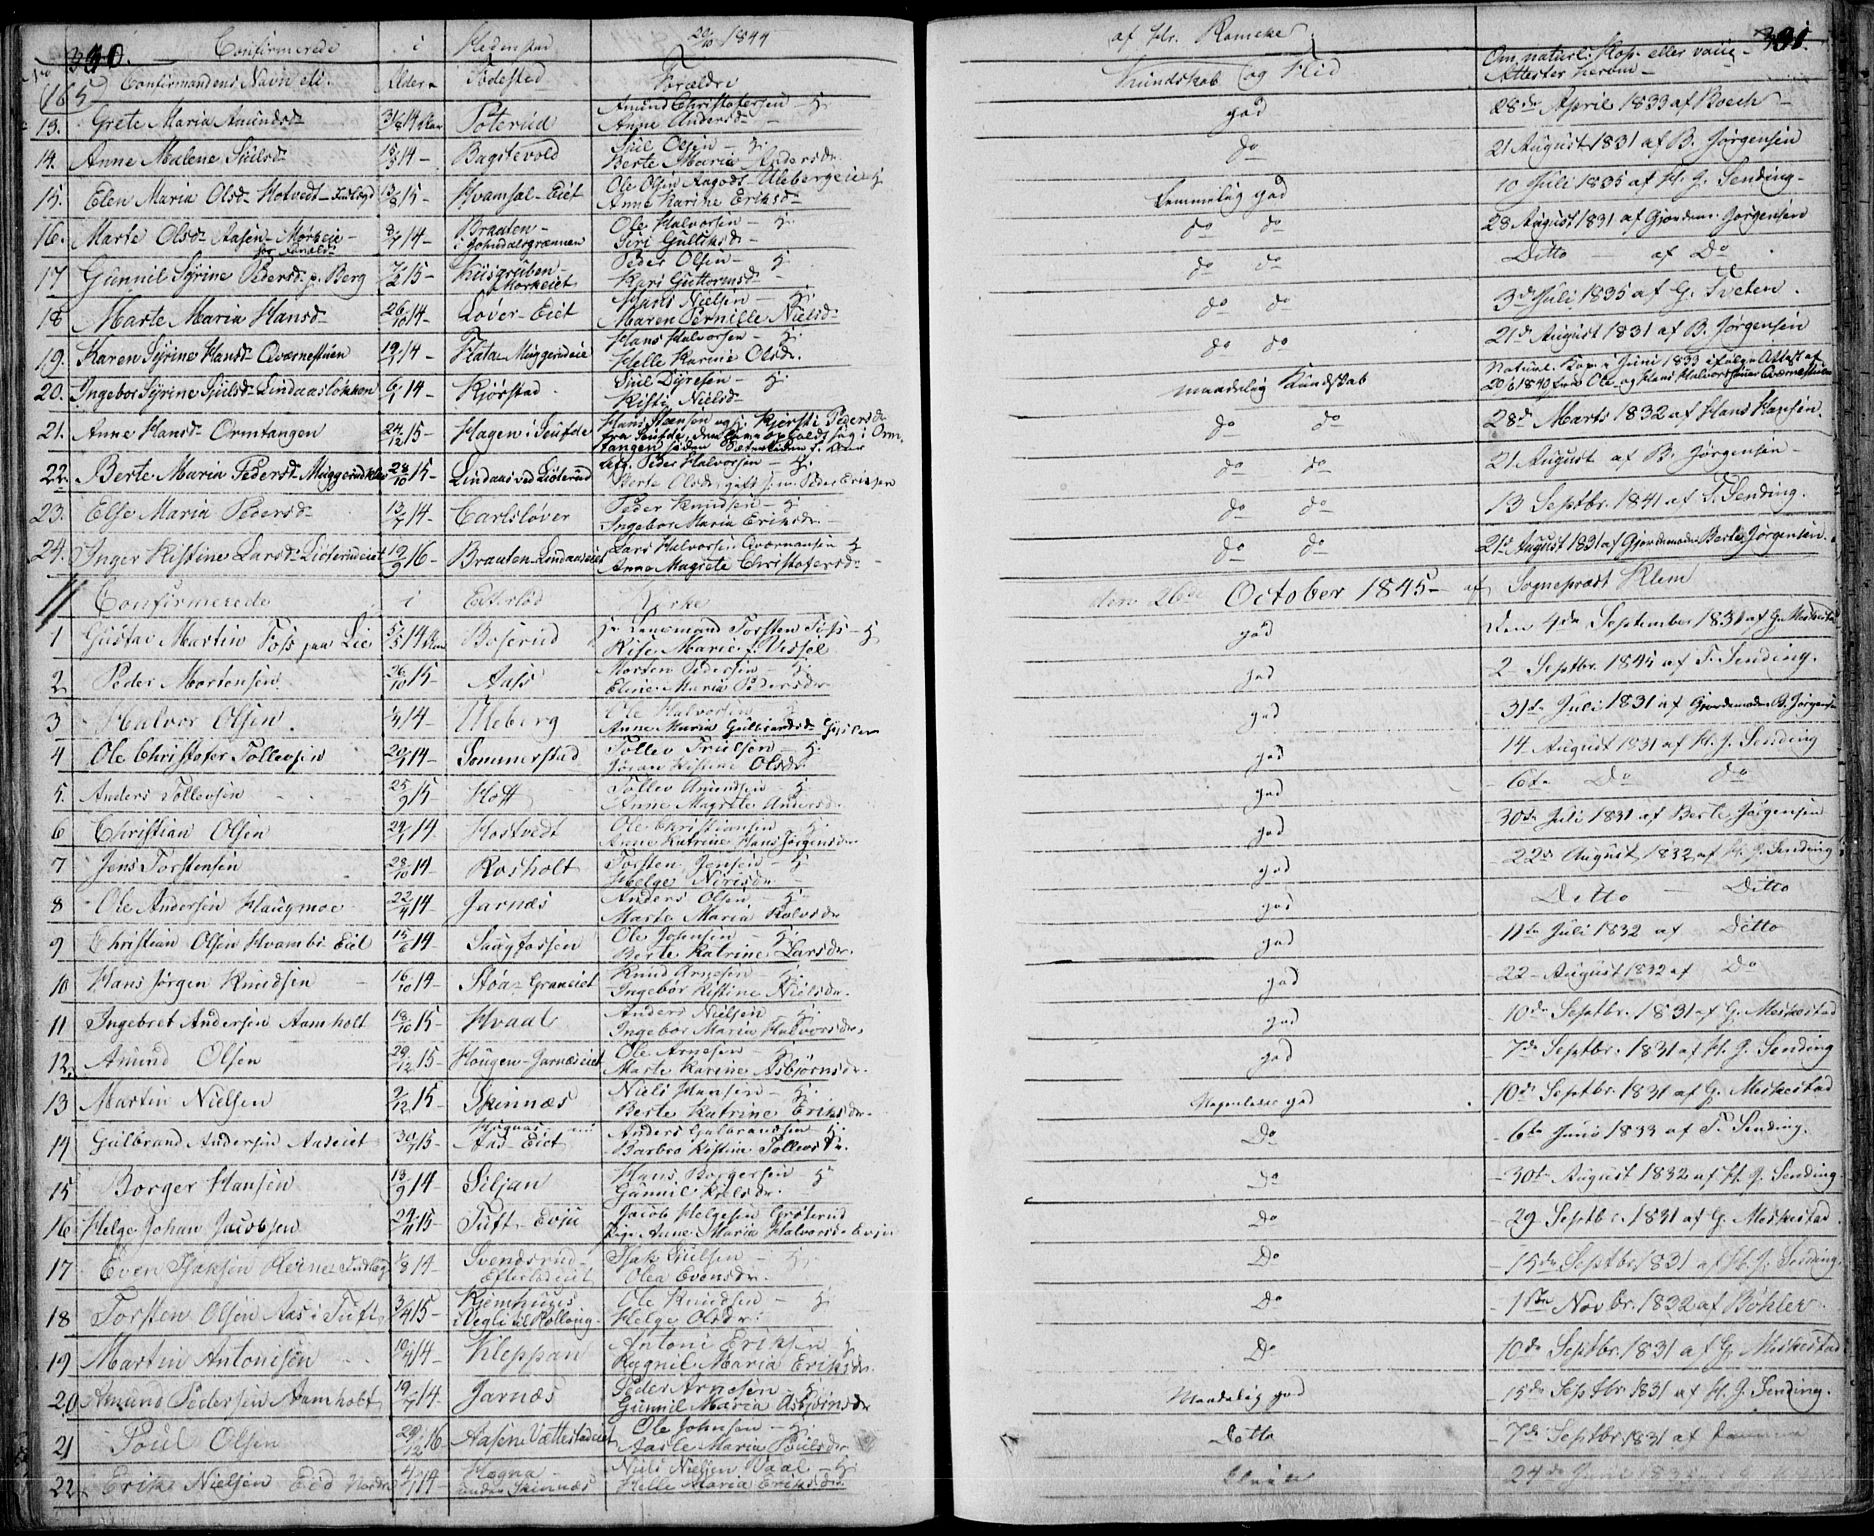 390. Confirmerede i Hedenstad 20/10 1844 af Hr. Rameke. 391.
No
(165) Confirmandens Navn etc. Alder Fødested Forældre Kundskab og Flid Om naturl: Kop. eller vacc: Attester herom
13. Grete Maria Amundsd. 31/8 14 Aar Poterud Amund Christofersen - Anne Andersd. god 28de April 1833 af Boech
14. Anne Malene Siulsd. 15/5 14 - Bagstevold Siul Olsen - Berte Maria Andersd. do 21 August 1831 af B. Jørgensen
15. Elen Maria Olsd. Hotvedt - 13/8 15 - Hvamsal-Eiet Ole Olsen Aagods-Ulebergeie Anne Karine Eriksd. temmelig god 10 Juli 1835 af H. J. Sending
16. Marte Olsd. Aasen - Mørkeie 14 - Braaten - i Johndalsgrænnen Ole Halvorsen - Siri Gulliksd. do do 28 August 1831 af Gjordem. Jørgensen
17 Gunnil Syrine Pedersd. p. Berg 15 - Kiisgruben - Morkeiet Peder Olsen - Kari Guttormsd. do do Ditto - af Do
18 Marte Maria Hansd. 26/10 14 - Løver-Eiet Hans Nielsen - Maren Pernille Nielsd. do do 3de Juli 1835 af G. Tveten.
19. Karen Syrine Hansd. Qvernestuen 19/7 14 - Flata Muggerudeie Hans Halvorsen - Helle Karine Olsd. do do 21de August 1831 af B. Jørgensen
20. Ingebor Syrine Siulsd. Lindaasløkken 14 - Kjørstad Siul Dyresen - Kisti Nielsd. maadelig Kundskab Natural. Kop. Juni 1833 ifølge Attest af 20/6 1840 fra Ole og Hans Halvorssønner Qværnestuen
21. Anne Hansd. Ormtangen 24/12 15 - Hagen i Siufde Hans Hansen og Kjersti Pedersd. fra Siufde, opholdt sig i Ormtangen siden do do 28de Marts 1832 af Hans Hansen.
22. Berte Maria Pedersd. Muggerud 28/10 15 - Lindaas ved Listerud Peder Halvorsen - Berte Olsd. gift m. Peder Eriksen do do 21 August af B. Jørgensen
23. Else Maria Pedersd. 13/7 14 - Carlsløver Peder Knudsen - Ingebor Maria Eriksd. do do 13 Septbr. 1841 af T. Sending.
24. Inger Kistine Larsd. Listerudeiet 19/9 16 - Braaten Lindaaseiet Lars Halvorsen Qværnaasen Anne Magrete Christofersd. do do 21de August 1831 af Gjordemoder Berte Jørgensen.
11 Confirmerede i Efterløds Kirke den 26de October 1845 - af Sogneprest Klem
1 Gustav Martin Foss paa Lie 5/5 14 Aar Boserud Lensmand Torsten Foss - Kise Marie f. Vessel god den 4de September 1831 af G. Meskestad
2 Peder Mortensen 26/10 15 - Aass Morten Pedersen - Eline Maria Pedersdr. god 2 - Septbr. 1845 af T. Sending.
3 Halvor Olsen. 14 - Uleberg Ole Halvorsen Anne Maria Gulbrandsd. god 31te Juli 1831 af Gjordemoder B. Jørgensen
4 Ole Christofer Tollevsen 29/7 14 - Sommerstad Tollev Truelsen - Kistine Olsdr. god 14 August 1831 af H. J. Sending
5. Anders Tollevsen 25/9 15 Hoff Tollev Amundsen Anne Magrete Andersd. god - 6te Do Do
6 Christian Olsen 14. Hostvedt Ole Christiansen Anne Katrine Hansjørgensdr. god 30te Juli 1831 af Berte Jørgensen
7 Jens Torstensen 28/10 14 Rosholt Torsten Jensen - Helge Nirisdr. god - 22de August 1832 af H. J. Sending
8 Ole Andersen Haugmoe 22/4 14 Jarnæs Anders Olsen - Marte Maria Rolvsdr. god Ditto - Ditto
9 Christian Olsen Hvambs Eiet 15/6 14 - Saugfossen Ole Johnsen - Berte Katrine Larsdr. god - 11te Juli 1832 af Ditto
10 Hans Jørgen Knudsen 16/10 14 Støa-Graneiet Knud Arnesen - Ingebor Kistine Nielsdr. god - 22 - August 1832 af Do
11 Ingebret Andersen Aamholt 18/10 15 - Hvaal Anders Nielsen Ingebor Maria Halvorsdr. god - 10de Septbr. 1831 af G. Meskestad
12. Amund Olsen 29/12 15 - Hougen-Jarnæseiet Ole Arnesen - Marte Karine Asbjørnsdr. god - 7de Septbr. 1831 af H. J. Sending
13 Martin Nielsen 3/12 15 Skinnæs Niels Hansen - Berte Katrine Eriksdr. god 10de Septbr. 1831 af G. Meskestad
14 Gulbrand Andersen Aaseiet 30/7 15 - Aas-Eiet Anders Gulbrandsen - Barbro Kistine Tollevsdr. Do - 6te Junii 1833 af T. Sending.
15 Borger Hansen 13/9 14 - Seljan Hans Borgersen Gunnil Nielsdr. Do - 30te August 1832 af H. J. Sending.
16 Helge Johan Jacobsen 24/11 15 - Tuft-Evju Jacob Helgesen Grøterud Pige Anne Maria Halvorsdr. Evju Do - 29 Septbr. 1831 af G. Meskestad.
17 Even Isaksen Reine 1/8 14 - Svendsrud - Efterlødeiet Isak Siulsen - Olea Evensdr. Do - 15de Septbr. 1831 af H. J. Sending.
18 Torsten Olsen Aas i Tuft 3/4 15 - Kjemhuus i Vegli til Rolloug. Ole Knudsen - Helge Olsdr. Do - 1ste Novbr. 1832 af Böhler
19 Martin Antonisen 14 - Kleppan Antoni Eriksen Rygnil Maria Eriksdr. Do 10de Septbr. 1831 af G. Meskestad
20 Amund Pedersen Aamholt 19/7 14 Jarnæs Peder Arnesen - Gunnil Maria Asbjørnsdr. Maadelig god - 15de Septbr 1831 af H. J. Sending.
21 Poul Olsen 29/12 16 Aasen Vættestadeiet Ole Johnsen - Aasle Maria Poulsdr. Ditto - 7de Septbr. 1831 af
22 Erik Nielsen Eid Nordre 14 - Hogna - under Skinnæs Niels Nielsen Waal - Helle Maria Eriksdr. 24de Juni 1833 af G.